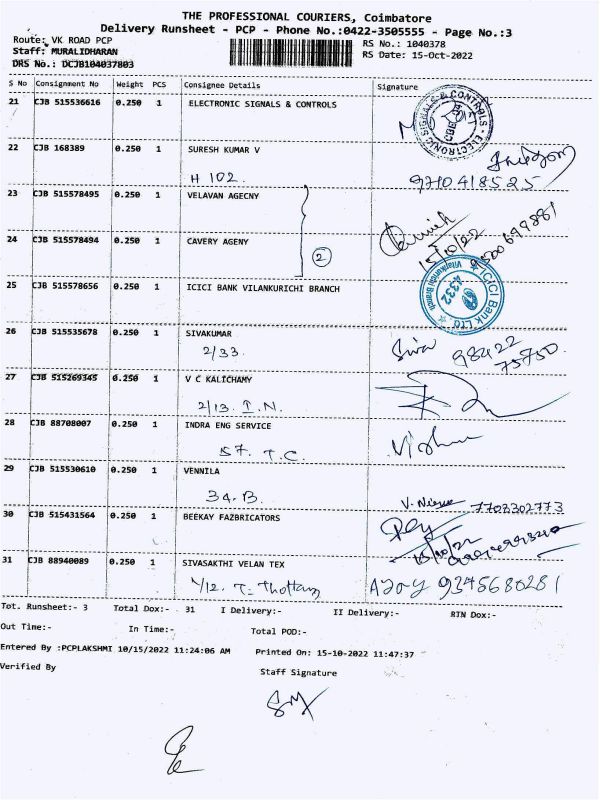 THE PROFESSIONAL COURIERS, Coimbatore
Delivery Runsheet - PCP - Phone No.:0422-3505555 - Page No.:3
Route: VK ROAD PCP RS No.: 1040378
Staff: MURALIDHARAN RS Date: 15-Oct-2022
DRS No.: DCJB104037803
S No Consignment No Weight PCS Consignee Details Signature
21 CJB 515536616 0.250 1 ELECTRONIC SIGNALS & CONTROLS
ELECTRONIC SIGNALS & CONTROLS
22 CJB 168389 0.250 1 SURESH KUMAR V
H 102. 9710418525
23 CJB 515578495 0.250 1 VELAVAN AGECNY
24 CJB 515578494 0.250 1 CAVERY AGENY
2 15/10/22
25 CJB 515578656 0.250 1 ICICI BANK VILANKURICHI BRANCH
ICICI Bank Ltd. Vilankurichi Branch
4332
26 CJB 515535678 0.250 1 SIVAKUMAR
2/33. Siva 98422
75750.
27 CJB 515269345 0.250 1 V C KALICHAMY
2/13. I.N.
28 CJB 88708007 0.250 1 INDRA ENG SERVICE
57. T.C. Vishnu
29 CJB 515530610 0.250 1 VENNILA
34.B. 7708302773
30 CJB 515431564 0.250 1 BEEKAY FAZBRICATORS
15/10/22
31 CJB 88940089 0.250 1 SIVASAKTHI VELAN TEX
1/12. T. Thottam AJAY 9345680281
Tot. Runsheet:- 3 Total Dox:- 31 I Delivery:- II Delivery:- RTN Dox:-
Out Time:- In Time:- Total POD:-
Entered By :PCPLAKSHMI 10/15/2022 11:24:06 AM Printed On: 15-10-2022 11:47:37
Verified By Staff Signature